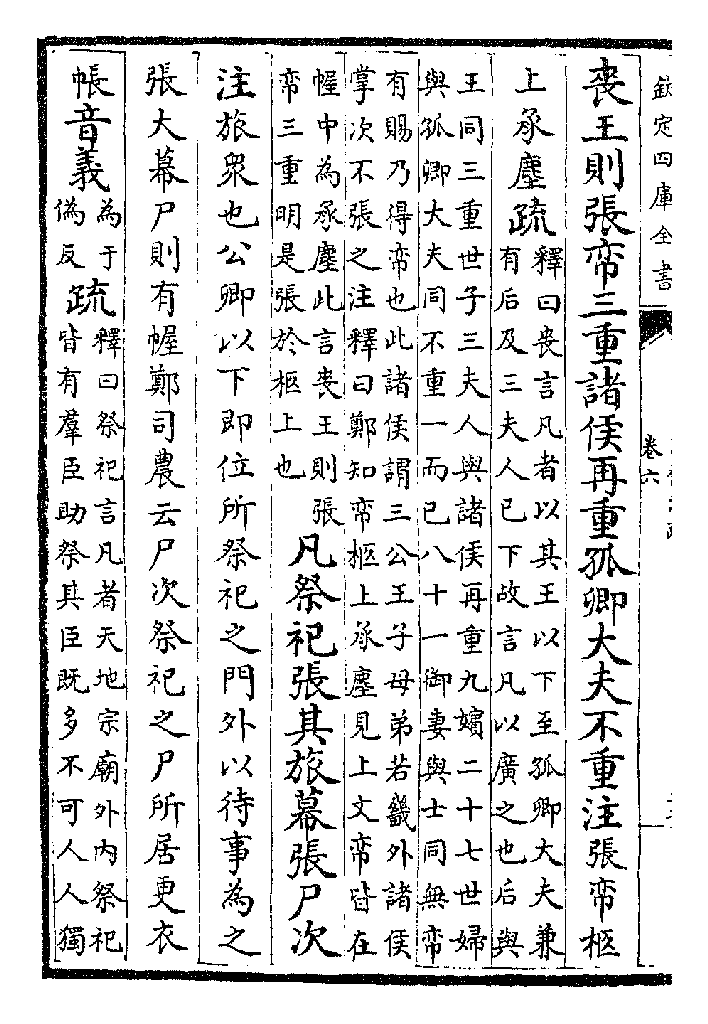 欽定四庫全書
卷六
喪王則張帟三重諸侯再重孤卿大夫不重注張帟柩
上承塵疏
釋曰喪言凡者以其王以下至孤卿大夫兼
有后及三夫人已下故言凡以廣之也后與
王同三重世子三夫人與諸侯再重九嬪二十七世婦
與孤卿大夫同不重一而已八十一御妻與士同無帟
有賜乃得帟也此諸侯謂三公王子母弟若畿外諸侯
掌次不張之注釋曰鄭知帟柩上承塵見上文帟皆在
幄中為承塵此言喪王則張
帟三重明是張於柩上也
凡祭祀張其旅幕張尸次
注旅衆也公卿以下即位所祭祀之門外以待事為之
張大幕尸則有幄鄭司農云尸次祭祀之尸所居更衣
帳音義
為于
偽反
疏
釋曰祭祀言凡者天地宗廟外内祭祀
皆有羣臣助祭其臣既多不可人人獨